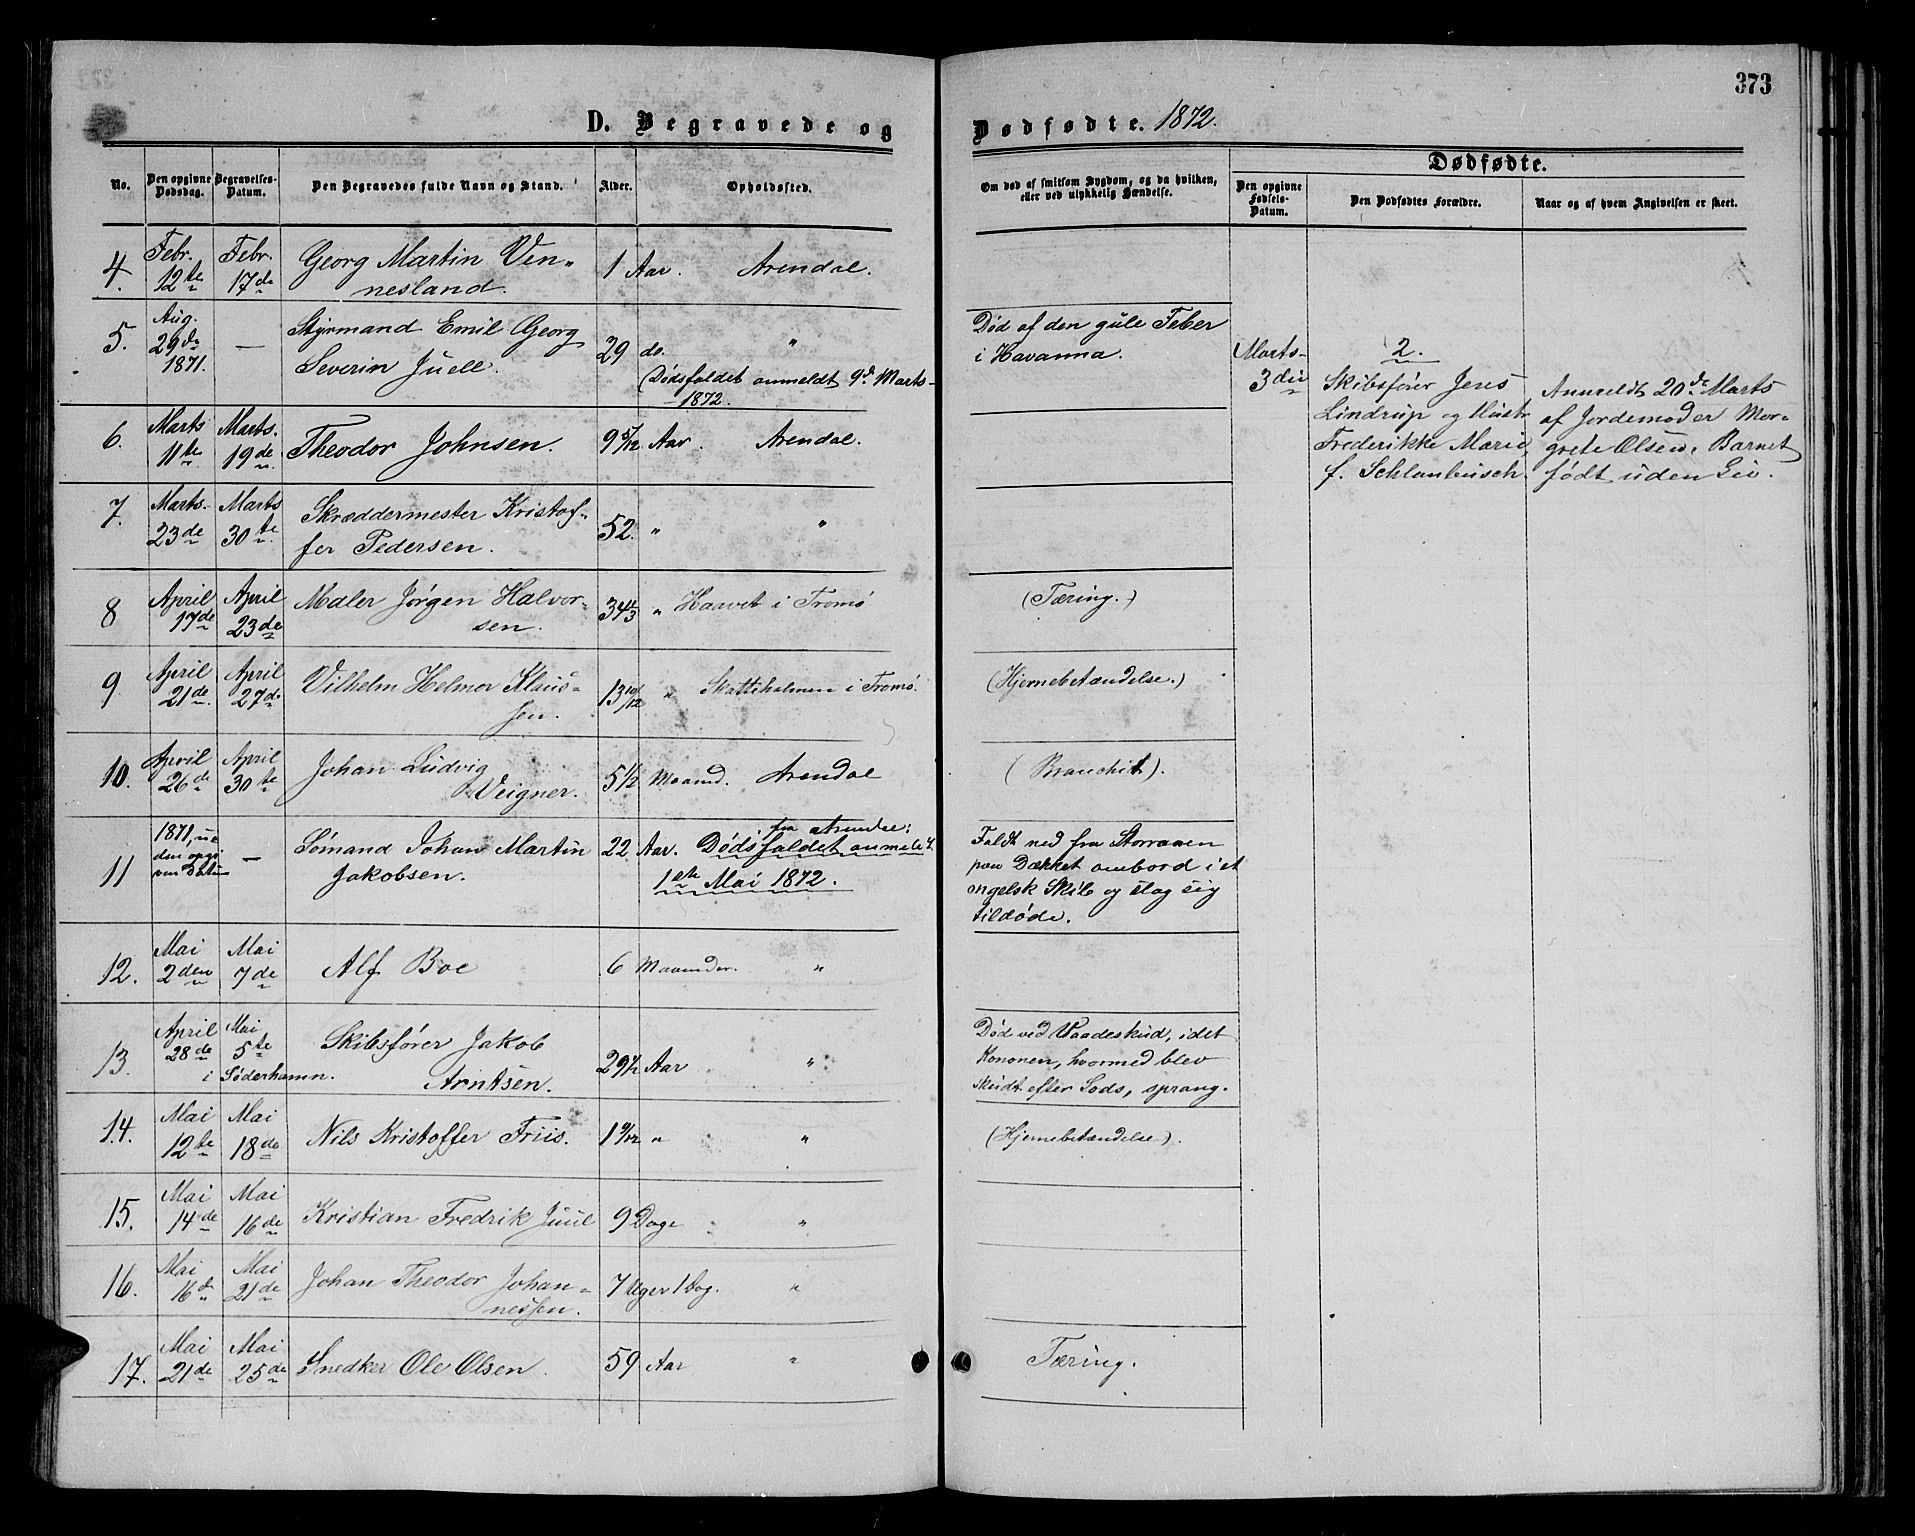 373
D. Begravede og Dødfødte. 1872.
No.
Den opgivne Dødsdag.
Begravelses-Datum.
Den Begravedes fulde Navn og Stand.
Alder.
Opholdssted.
Om død af smitsom Sygdom, og da hvilken,
eller ved ulykkelig Hændelse.
Dødfødte.
Den opgivne Fødsels-Datum.
Den Dødfødtes Forældre.
Naar og af hvem Angivelsen er skeet.
4. Febr. 12te Febr. 17de Georg Martin Ven-
nesland. 1 Aar. Arendal.
5. Aug. 29de 1871. — Styrmand Emil Georg
Severin Juell. 29 do. "
(Dødsfaldet anmeldt 9de Marts
1872.
Død af den gule Feber
i Havanna.
Marts 3die
2.
Skibsfører Jens
Lindrup og Hustr
Frederikke Marie
f. Schlanbusch.
Anmeldt 20de Marts
af Jordemoder Mar-
grete Olsen. Barnet
født uden Liv.
6. Marts 11te Marts. 19de Theodor Johnsen. 9 5/12 Aar. Arendal.
7. Marts. 23de Marts 30te Skræddermester Kristof-
fer Pedersen. 52. " "
8 April 17de April 23de Maler Jørgen Halvor-
sen. 34 " Haavet i Tromø
(Tæring.)
9 April 21de April 27de Vilhelm Helmer Klaus-
sen. 13 10/12 " Skatteholmen i Tromø.
(Hjernebetændelse.)
10. April 26de April 30te Johan Ludvig
Veigner. 5 1/2 Maaned. Arendal
(Bronchit).
11 1871, uden opgiven Datum — Sømand Johan Martin
Jakobsen. 22 Aar. fra Arendal:
Dødsfaldet anmeldt
1ste Mai 1872.
Faldt ned fra Storraaen
paa Dækket ombord i et
engelsk Skib og slog sig
tildøde.
12. Mai 2den Mai 7de Alf Boe 6 Maaneder. "
13. April 28de Mai 5te
i Söderhamn.
Skibsfører Jakob
Arntsen. 29 1/2 Aar "
Død ved Vaadeskud, idet
Kanonen, hvormed blev
skudt efter Lods, sprang.
14. Mai 12te Mai 18de Nils Kristoffer Friis. 1 9/12 " "
(Hjernebetændelse).
15. Mai 14de Mai 16de Kristian Fredrik Juul 9 Dage "
16. Mai 16de Mai 21de Johan Theodor Johan-
nessen. 7 Uger 1 Dag. "
17. Mai 21de Mai 25de Snedker Ole Olsen. 59 Aar "
Tæring.